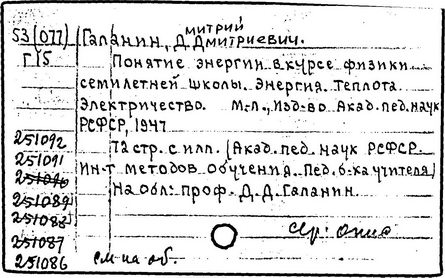 53(077)
Г15
Галанин, Дмитрий Дмитриевич.
Понятие энергии в курсе физики
семилетней школы. Энергия. Теплота
Электричество. М.-Л., Изд-во Акад. пед. наук
РСФСР, 1947
72 стр. с илл. (Акад. пед. наук РСФСР.
Ин-т методов обучения. Пед. б-ка учителя)
На обл: проф. Д. Д. Галанин
251092
251091
251090
251089
251088
251087
251086
см на об.